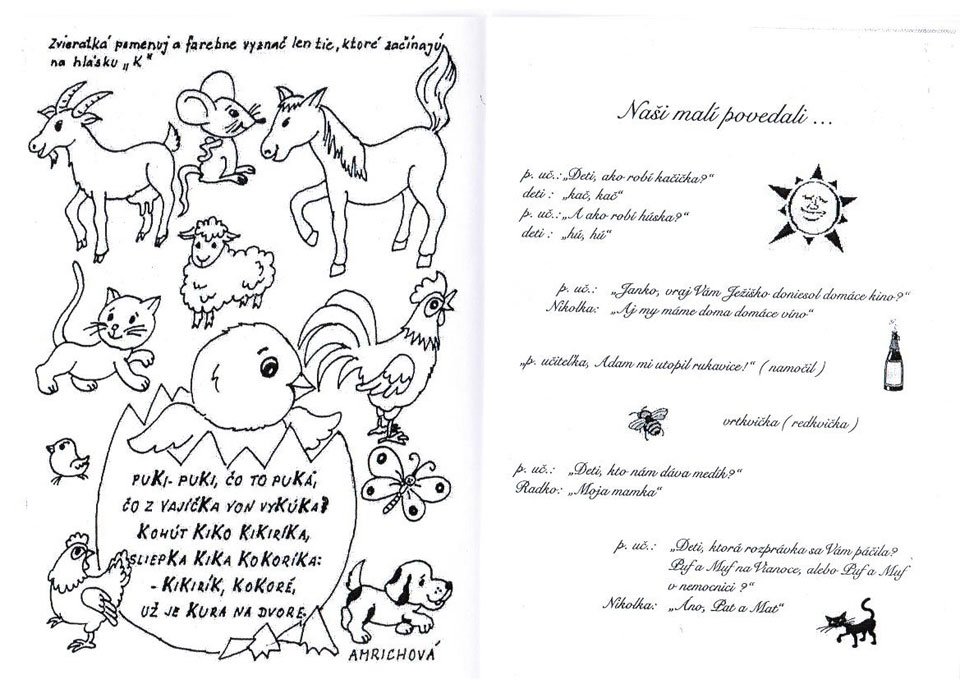 Zvieratká pomenuj a farebne vyznač len tie, ktoré začínajú
na hlásku „K"
PUKI-PUKI, ČO TO PUKÁ,
ČO Z VAJÍČKA VON VYKÚKA?
KOHÚT KIKO KIKIRÍKA,
SLIEPKA KIKA KOKORÍKA:
- KIKIRÍK, KOKORÉ,
UŽ JE KURA NA DVORE.
AMRICHOVÁ
Naši malí povedali ...
p. uč.: „Deti, ako robí kačička?"
deti : „kač, kač"
p. uč.: „A ako robí húska?"
deti : „hú, hú"
p. uč.: „Janko, vraj Vám Ježiško doniesol domáce kino?"
Nikolka: „Aj my máme doma domáce víno"
„p. učiteľka, Adam mi utopil rukavice!" ( namočil )
vrtkvička ( redkvička )
p. uč.: „Deti, kto nám dáva medík?"
Radko: „Moja mamka"
p. uč.: „Deti, ktorá rozprávka sa Vám páčila?
Puf a Muf na Vianoce, alebo Puf a Muf
v nemocnici ?"
Nikolka: „Áno, Pat a Mat"